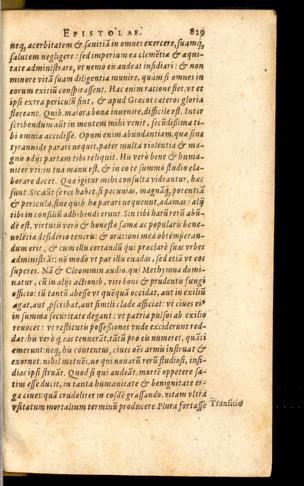 EPISTOLAE. 829
neq, acerbitatem & sæuitiā in omnes exercere, suamq́;
salutem negligere: sed imperium ea clemētia & æqui-
tate administrare, vt nemo ei audeat insidiari: & non
minore vitā suam diligentia munire, quam si omnes in
eorum exitiū conspirassent. Hac enim ratione fiet, vt et
ipsi extra periculū sint, & apud Græcos cæteros gloria
floreant. Quib. maiora bona inuenire, difficile est. Inter
scribendum aūt in mentem mihi venit, secūdißima ti-
bi omnia accidisse. Opum enim abundantiam, quæ sine
tyrannide parari nequit, pater multa violētia & ma-
gnis odijs partam tibi reliquit. His verò bene & huma-
niter vti: in tua manu est, & in eo te summo studio ela-
borare decet. Quæ igitur mihi consulta videantur, hæc
sunt. Sicaūt se res habet. si pecunias, magnāq́, potentiā
& pericula, sine quib. hæ parari nequeunt, adamas: alij
tibi in consiliū adhibendi erunt. Sin tibi harū rerū abū-
dè est, virtutis verò & honestæ famæ ac popularis bene-
uolētiæ desiderio teneris: & orationi meæ obtemperan-
dum erit, & cum illu certandū qui præclarè suas vrbes
administrāt: nō modò vt par illu euadas, sed etiā vt eos
superes. Nā & Cleommin audio, qui Methymna domi-
natur, cū in alijs actionib., viri boni & prudentis fungi
officio: tū tantū abesse vt quēquā occidat, aut in exiliū
agat, aut ꝓscribat, aut simili clade afficiat: vt ciues eiꝰ
in summa securitate degant: vt patria pulsos ab exilio
reuocet: vt restitutis possessiones vnde exciderunt red-
dat: his verò q́ eas tenuerāt, tātū pro eis numeret, quāti
emerunt: neq́, his contentus, ciues oēs armis instruat &
exornet. nihil metuēs, ne qui nouarū rerū studiosi, insi-
dias ipsi struāt. Quod si qui audeāt: mortē oppetere sa-
tius esse ducit, in tanta humanitate & benignitate er-
ga ciues: quā crudeliter in eosdē grassando. vitam vltra
vsitatum mortalium terminū producere. Plura fortasse
Transitio